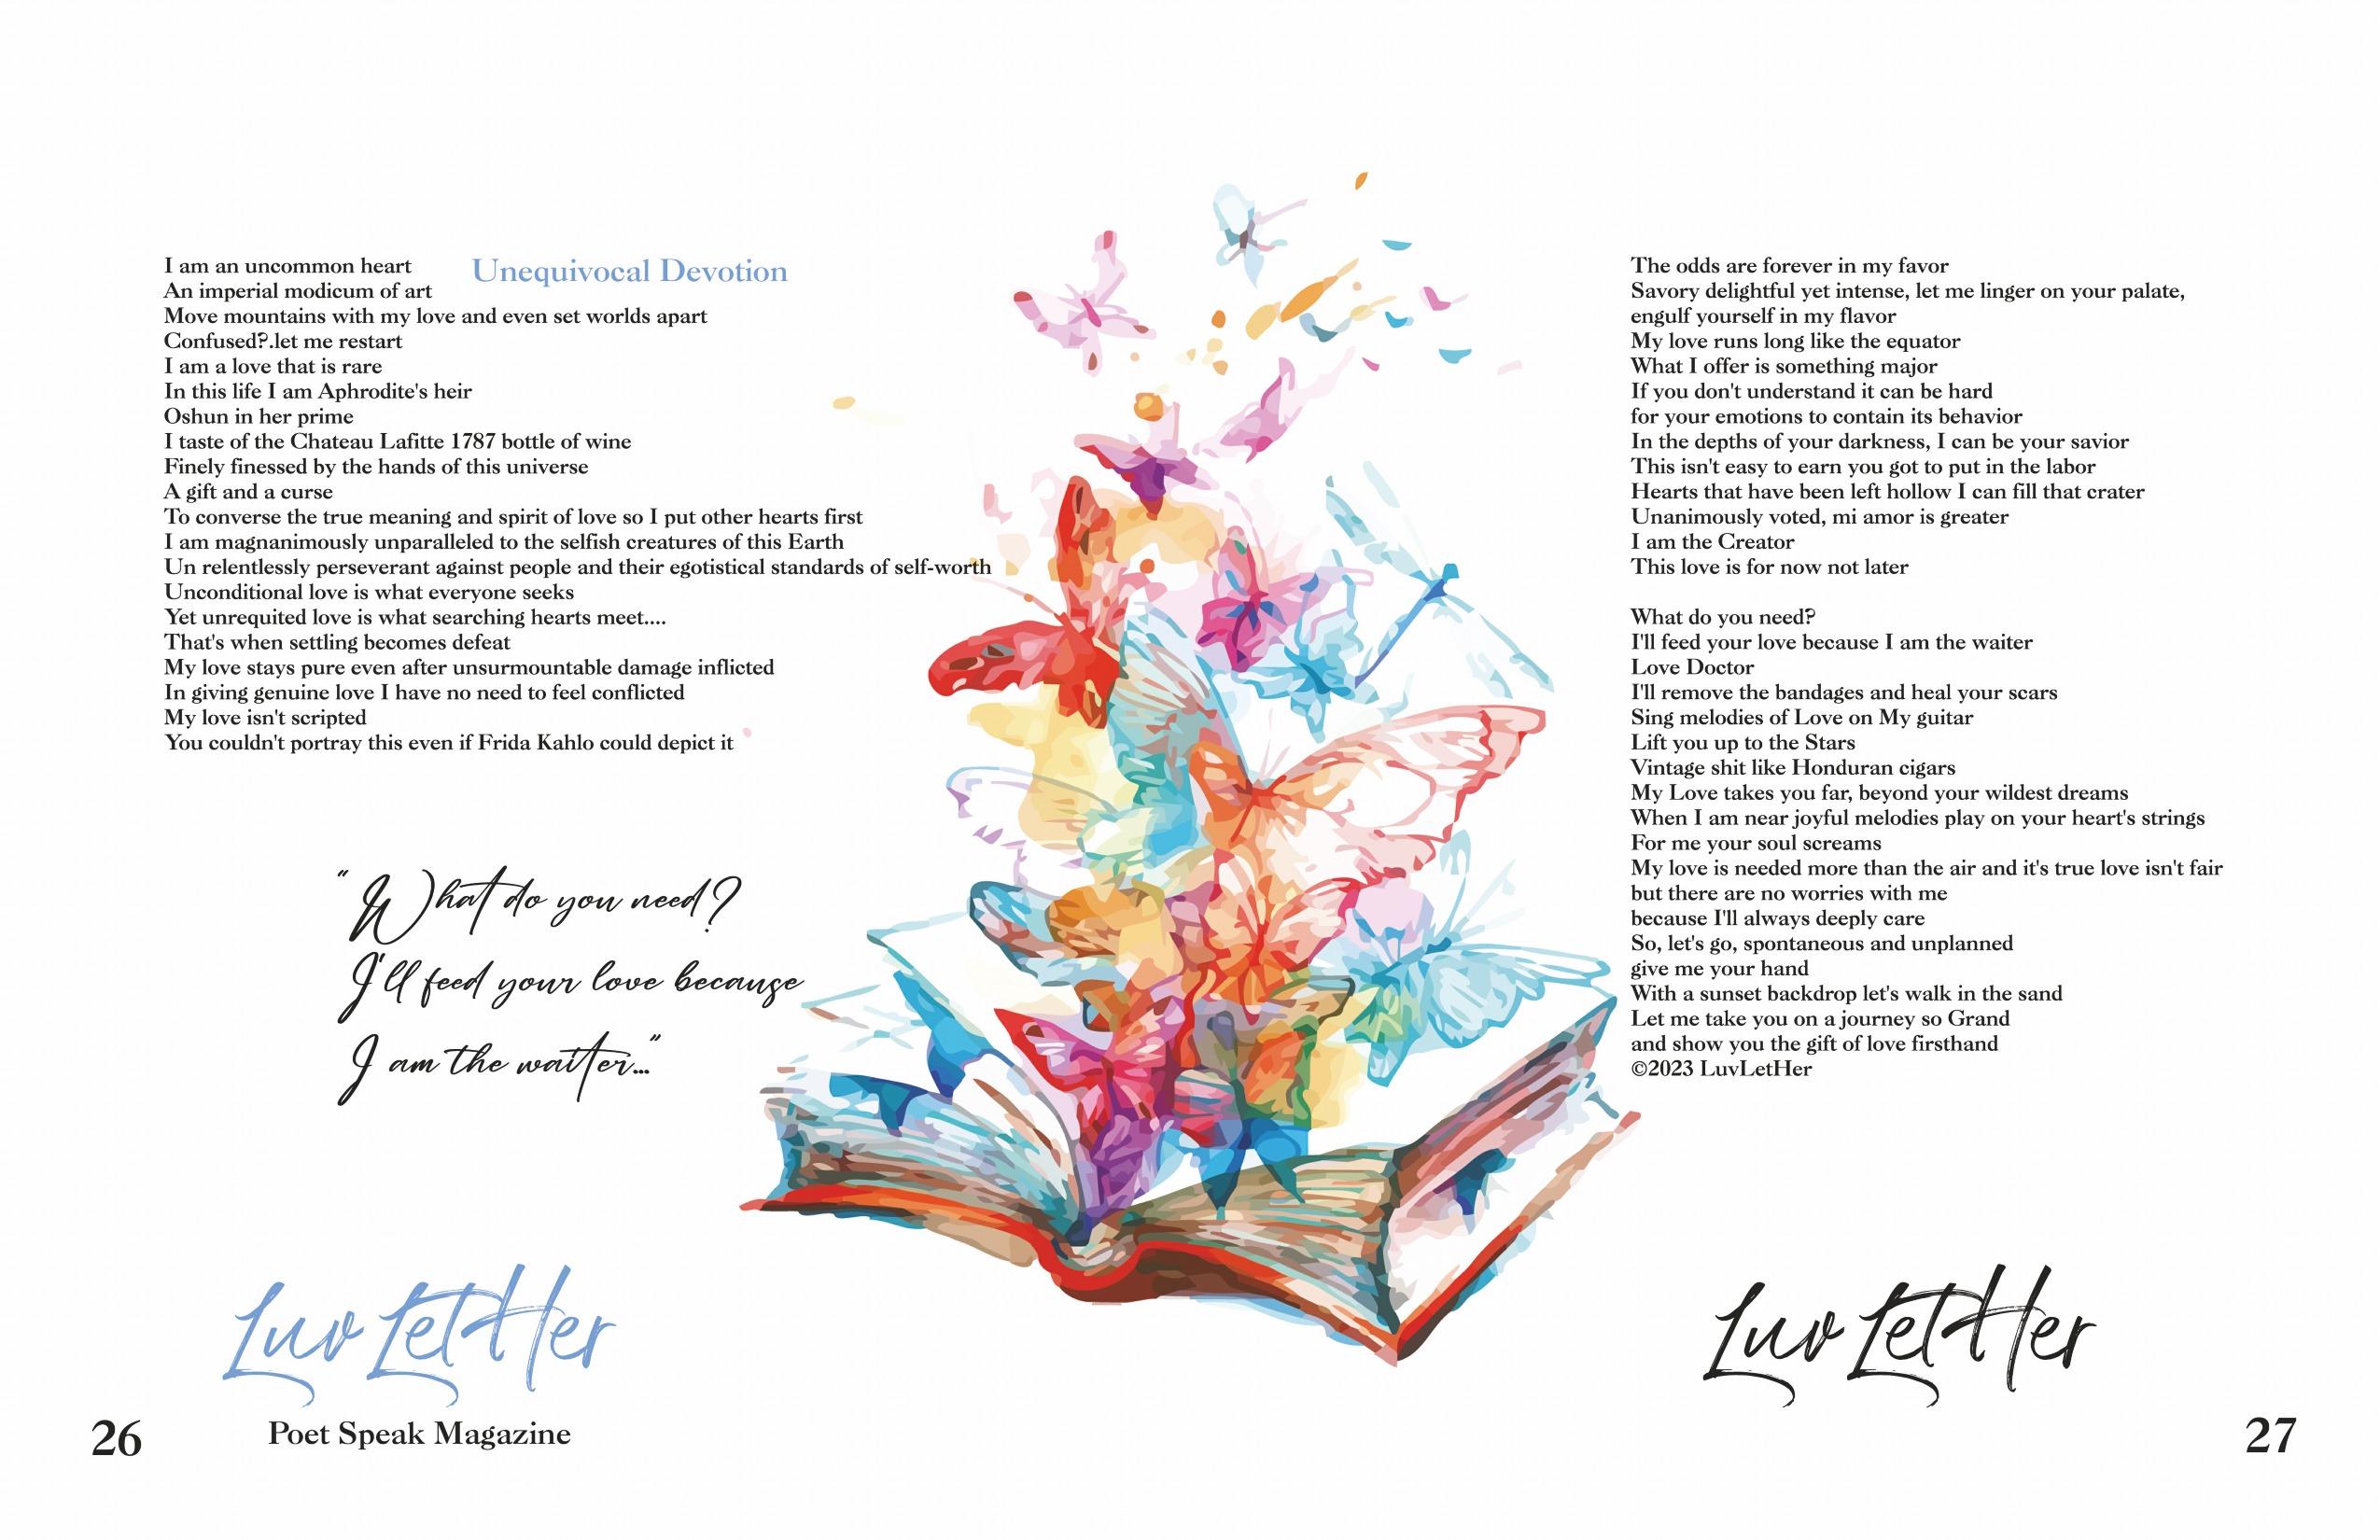 Unequivocal Devotion
I am an uncommon heart
An imperial modicum of art
Move mountains with my love and even set worlds apart
Confused?.let me restart
I am a love that is rare
In this life I am Aphrodite's heir
Oshun in her prime
I taste of the Chateau Lafitte 1787 bottle of wine
Finely finessed by the hands of this universe
A gift and a curse
To converse the true meaning and spirit of love so I put other hearts first
I am magnanimously unparalleled to the selfish creatures of this Earth
Un relentlessly perseverant against people and their egotistical standards of self-worth
Unconditional love is what everyone seeks
Yet unrequited love is what searching hearts meet....
That's when settling becomes defeat
My love stays pure even after unsurmountable damage inflicted
In giving genuine love I have no need to feel conflicted
My love isn't scripted
You couldn't portray this even if Frida Kahlo could depict it
"What do you need?
I'll feed your love because
I am the waiter..."
LuvLetHer
26
Poet Speak Magazine
The odds are forever in my favor
Savory delightful yet intense, let me linger on your palate,
engulf yourself in my flavor
My love runs long like the equator
What I offer is something major
If you don't understand it can be hard
for your emotions to contain its behavior
In the depths of your darkness, I can be your savior
This isn't easy to earn you got to put in the labor
Hearts that have been left hollow I can fill that crater
Unanimously voted, mi amor is greater
I am the Creator
This love is for now not later
What do you need?
I'll feed your love because I am the waiter
Love Doctor
I'll remove the bandages and heal your scars
Sing melodies of Love on My guitar
Lift you up to the Stars
Vintage shit like Honduran cigars
My Love takes you far, beyond your wildest dreams
When I am near joyful melodies play on your heart's strings
For me your soul screams
My love is needed more than the air and it's true love isn't fair
but there are no worries with me
because I'll always deeply care
So, let's go, spontaneous and unplanned
give me your hand
With a sunset backdrop let's walk in the sand
Let me take you on a journey so Grand
and show you the gift of love firsthand
©2023 LuvLetHer
LuvLetHer
27